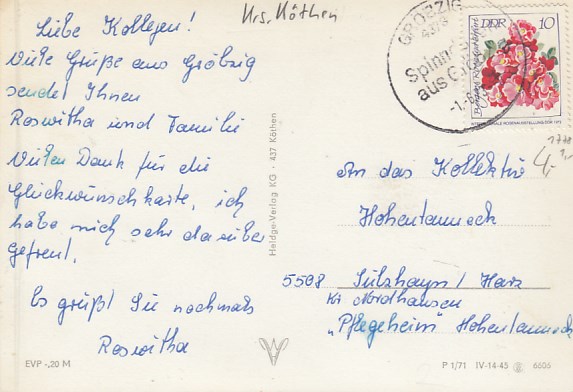 Krs. Köthen
Liebe Kollegen!
Viele Grüße aus Gröbzig
sendet Ihnen
Roswitha und Familie
Vielen Dank für die
Glückwunschkarte, ich
habe mich sehr darüber
gefreut.
Es grüßt Sie nochmals
Roswitha
EVP -,20 M
Heldge-Verlag KG · 437 Köthen
GRÖBZIG
4373
Spinn
aus G
-1.-8
DDR 10
INTERNATIONALE ROSENAUSSTELLUNG DER 1972
1778
4,-
1,-
An das Kollektiv
Hohentanneck
5508 Sülzhayn / Harz
Kr Nordhausen
„Pflegeheim" Hohentanneck
P 1/71 IV-14-45 6505